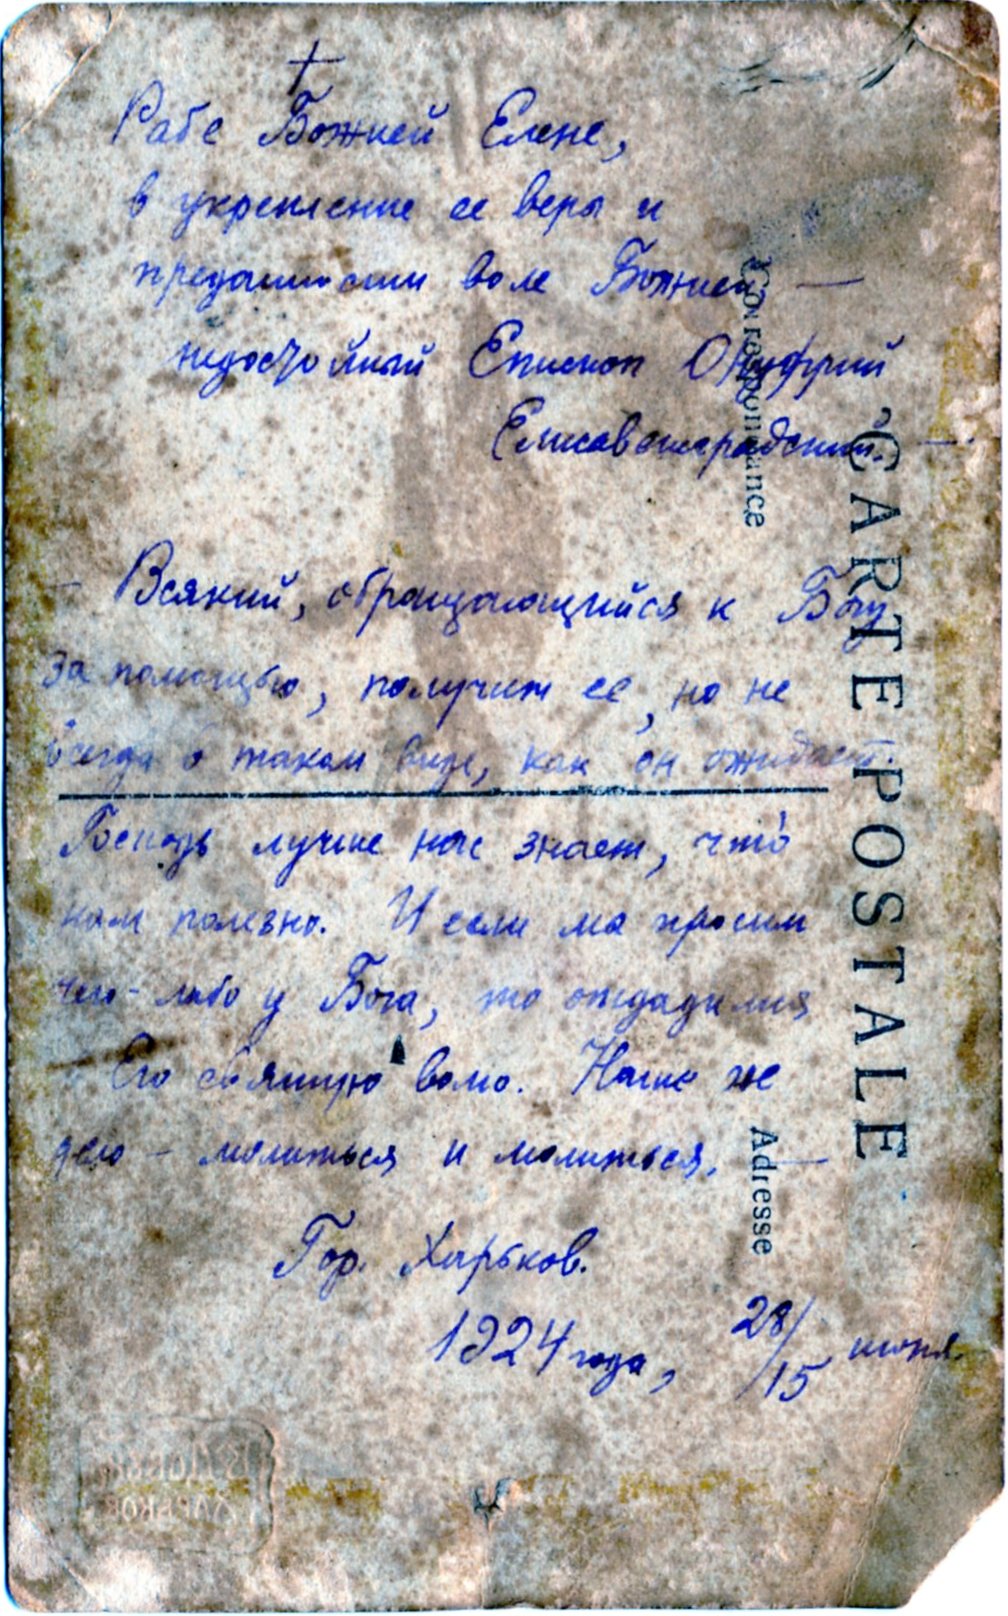 Рабе Божией Елене,
в укрепление ее веры и
преданности воле Божией, —
недостойный Епископ Онуфрий
Елисаветградский. —
— Всякий, обращающийся к Богу
за помощью, получит ее, но не
всегда в таком виде, как он ожидает.
Господь лучше нас знает, что́
нам полезно. И если мы просим
чего-либо у Бога, то
Его святую волю. Наше же
дело — молиться и молиться. —
Гор. Харьков.
1924 года, 28/15 июня.
CARTE POSTALE
Correspondance
Adresse
ХАРЬКОВ